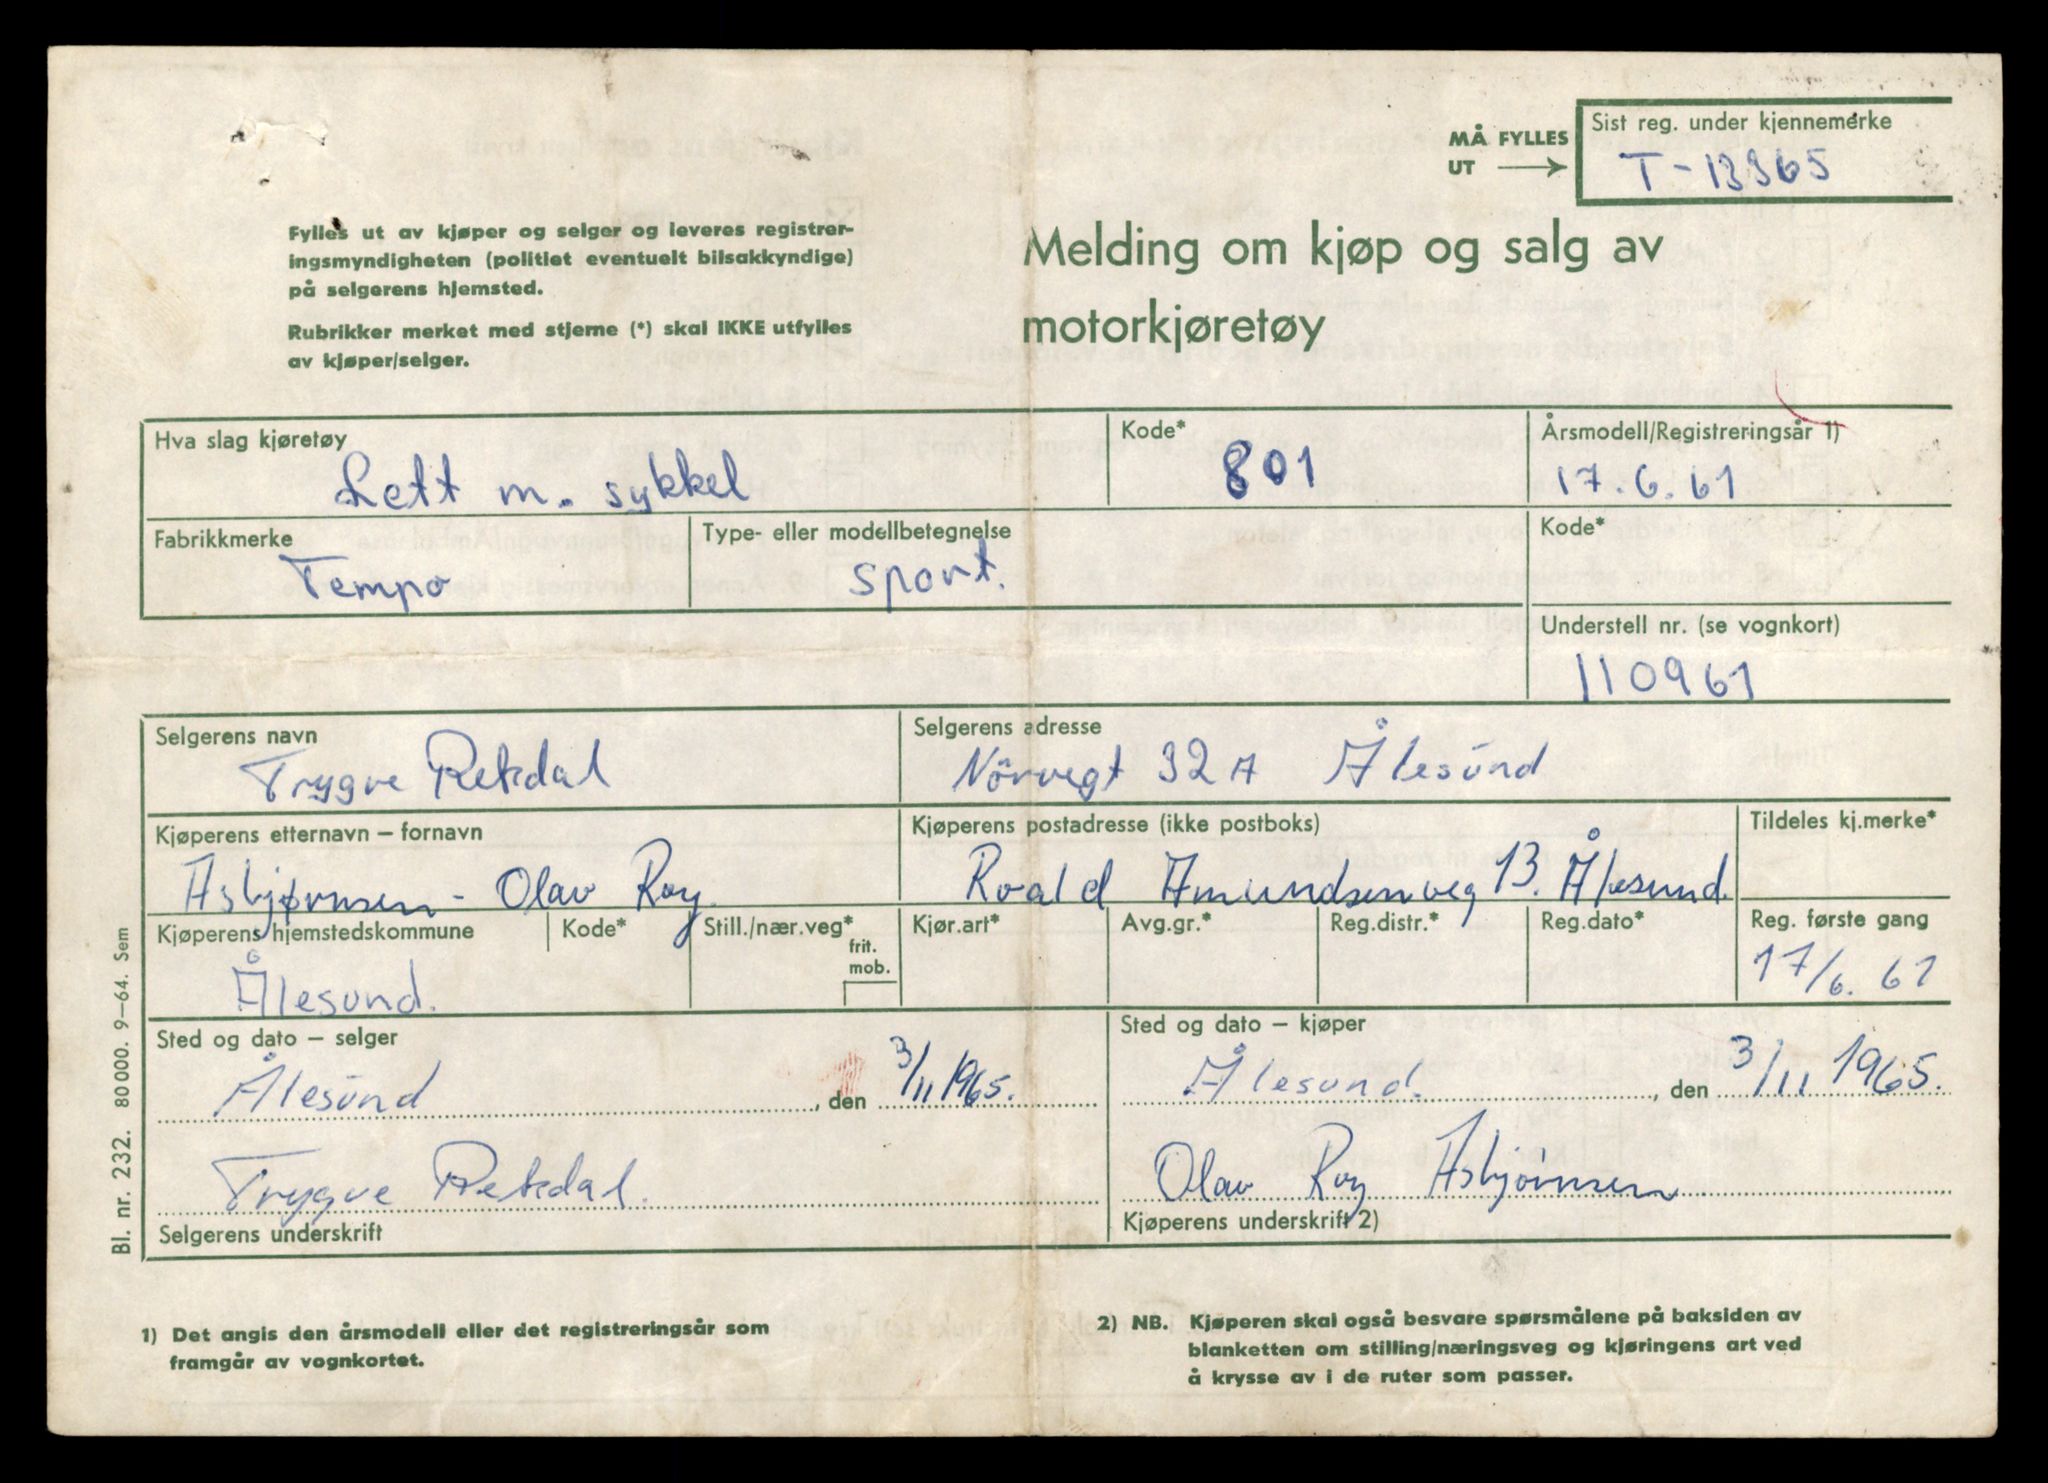 MÅ FYLLES UT →
Sist reg. under kjennemerke
T-13365
Fylles ut av kjøper og selger og leveres registrer-
ingsmyndigheten (politiet eventuelt bilsakkyndige)
på selgerens hjemsted.
Rubrikker merket med stjerne (*) skal IKKE utfylles
av kjøper/selger.
Melding om kjøp og salg av
motorkjøretøy
Hva slag kjøretøy
Lett m. sykkel
Kode*
801
Årsmodell/Registreringsår 1)
17.6.61
Fabrikkmerke
Tempo
Type- eller modellbetegnelse
Sport.
Kode*
Understell nr. (se vognkort)
110961
Selgerens navn
Trygve Rekdal
Selgerens adresse
Nörvegt 32A Ålesund
Kjøperens etternavn – fornavn
Asbjørnsen - Olav Roy.
Kjøperens postadresse (ikke postboks)
Roald Amundsenveg 13. Ålesund.
Tildeles kj.merke*
Kjøperens hjemstedskommune
Ålesund.
Kode*
Still./nær.veg*
frit.
mob.
Kjør.art*
Avg.gr.*
Reg.distr.*
Reg.dato*
Reg. første gang
17/6. 61
Sted og dato – selger
Ålesund, den 3/11 1965.
Sted og dato – kjøper
Ålesund., den 3/11 1965.
Trygve Rekdal.
Selgerens underskrift
Olav Roy Asbjørnsen
Kjøperens underskrift 2)
Bl. nr. 232. 80 000. 9–64. Sem
1) Det angis den årsmodell eller det registreringsår som
framgår av vognkortet.
2) NB. Kjøperen skal også besvare spørsmålene på baksiden av
blanketten om stilling/næringsveg og kjøringens art ved
å krysse av i de ruter som passer.